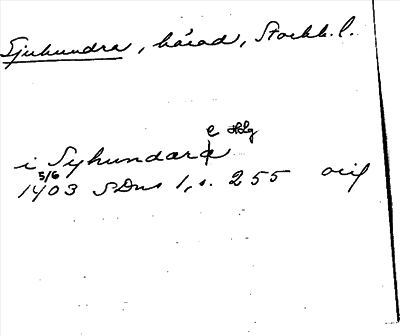 Sjuhundra, härad, Stockh. l.
e Hlg
i Syhundara
1403 5/6 SDns 1, s. 255 orig